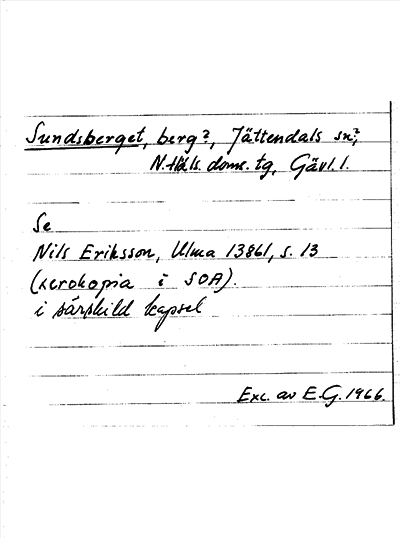 Sundsberget, berg?, Jättendals sn?,
N. Häls. doms. tg, Gävl. l.
Se
Nils Eriksson, Ulma 13861, s. 13
(xerokopia i SOA).
i särskild kapsel
Exc. av E.G. 1966.